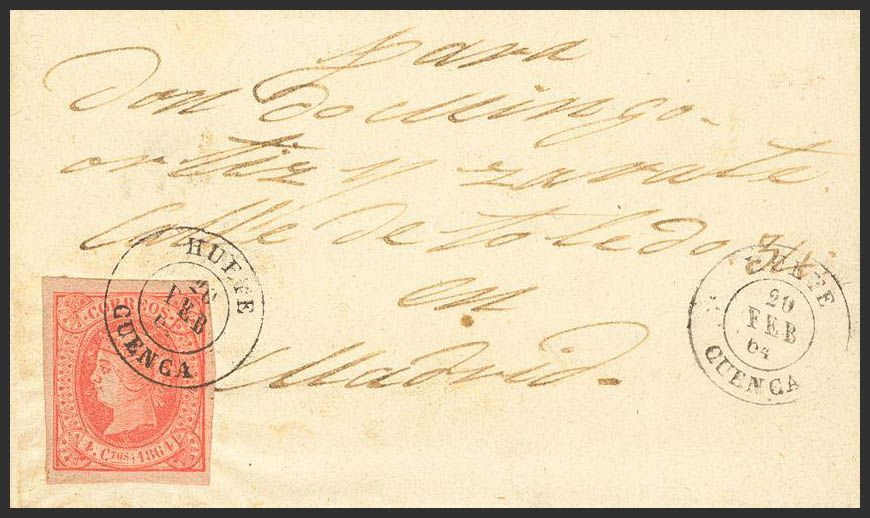 para
Don do Mingo.
ortiz y zarate.
Calle de toledo
en
Madrid.
HUETE
20
FEB
CUENCA
CORREOS
4. CTOS 1864
HUETE
20
FEB
64
CUENCA